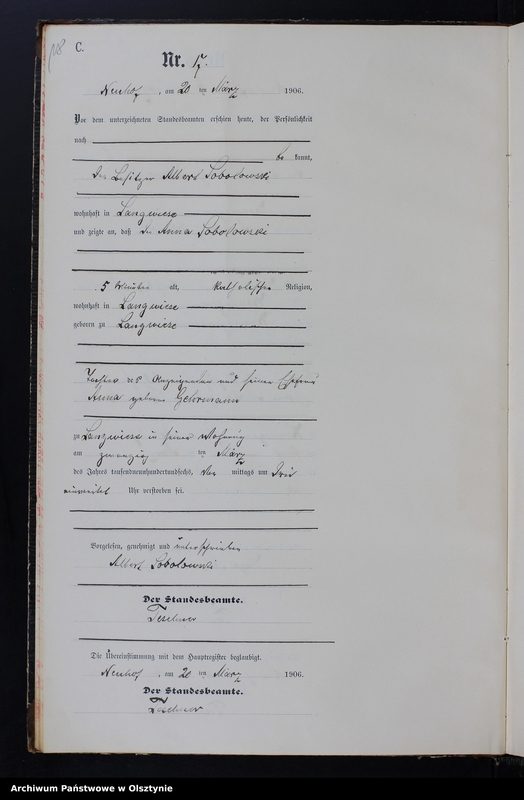 118
C.
Nr. 17.
Neuhof, am 20 ten März 1906.
Vor dem unterzeichneten Standesbeamten erschien heute, der Persönlichkeit
nach
be kannt,
der Besitzer Albert Sobolowski
wohnhaft in Langwiese
und zeigte an, daß die Anna Sobolowski
5 Minuten alt, katholischer Religion,
wohnhaft in Langwiese
geboren zu Langwiese
Tochter des Anzeigenden und seiner Ehefrau
Anna geborene Gehrmann
zu Langwiese in seiner Wohnung
am zwanzigsten ten März
des Jahres tausendneunhundertsechs, Vor mittags um Drei
einviertel Uhr verstorben sei.
Vorgelesen, genehmigt und unterschrieben
Albert Sobolowski
Der Standesbeamte.
Teschner
Die Übereinstimmung mit dem Hauptregister beglaubigt.
Neuhof, am 20 ten März 1906.
Der Standesbeamte.
Teschner
Archiwum Państwowe w Olsztynie